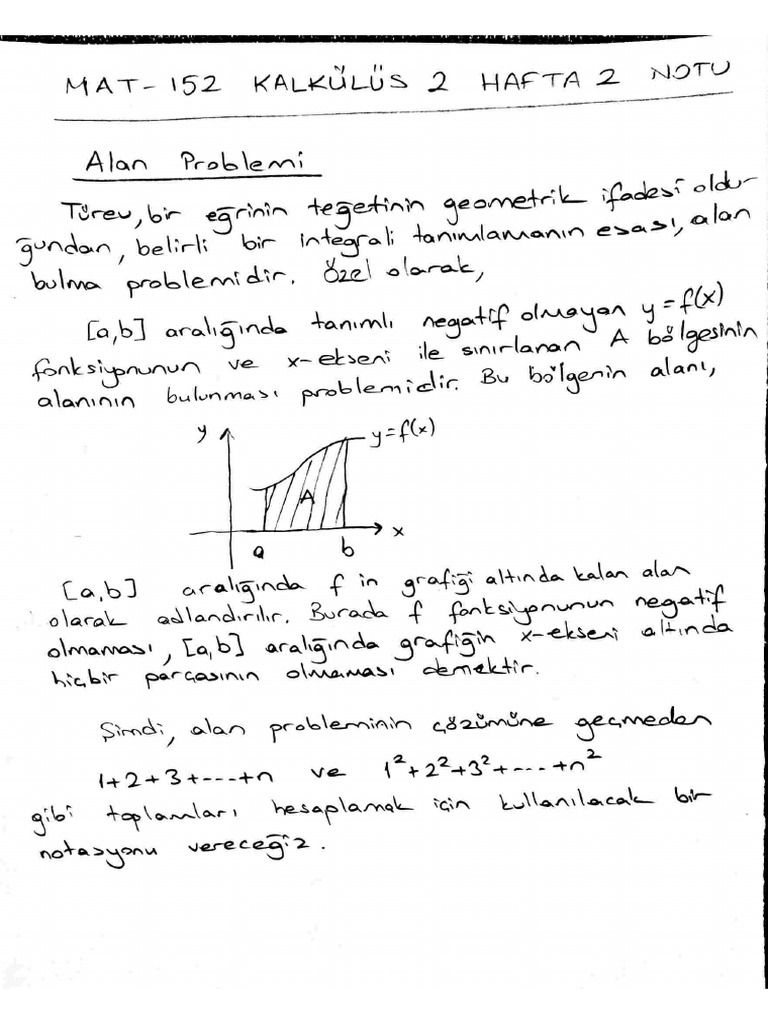 MAT-152 KALKÜLÜS 2 HAFTA 2 NOTU
Alan Problemi
Türev, bir eğrinin teğetinin geometrik ifadesi oldu-
ğundan, belirli bir integrali tanımlamanın esası, alan
bulma problemidir. Özel olarak,
[a,b] aralığında tanımlı negatif olmayan y=f(x)
fonksiyonunun ve x-ekseni ile sınırlanan A bölgesinin
alanının bulunması problemidir. Bu bölgenin alanı,
y
y=f(x)
A
x
a b
[a,b] aralığında f in grafiği altında kalan alan
olarak adlandırılır. Burada f fonksiyonunun negatif
olmaması, [a,b] aralığında grafiğin x-ekseni altında
hiçbir parçasının olmaması demektir.
Şimdi, alan probleminin çözümüne geçmeden
1+2+3+----+n ve 1²+2²+3²+----+n²
gibi toplamları hesaplamak için kullanılacak bir
notasyonu vereceğiz.